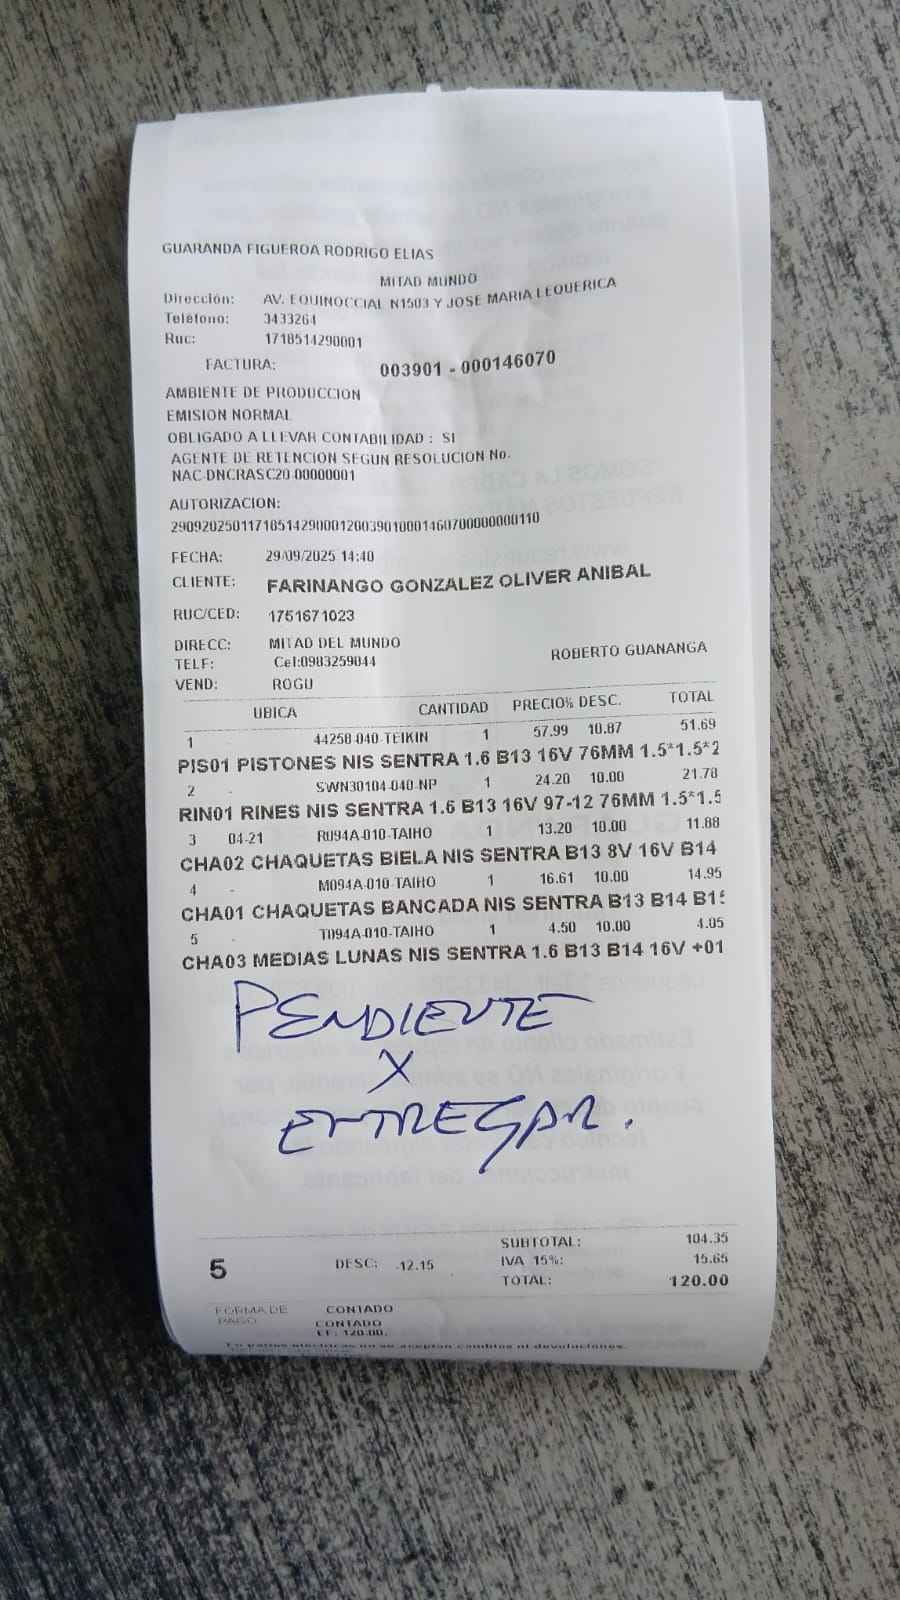 GUARANDA FIGUEROA RODRIGO ELIAS
MITAD MUNDO
Dirección: AV. EQUINOCCIAL N1503 Y JOSE MARIA LEQUERICA
Teléfono: 3433264
Ruc: 1718514290001
FACTURA: 003901 - 000146070
AMBIENTE DE PRODUCCION
EMISION NORMAL
OBLIGADO A LLEVAR CONTABILIDAD : SI
AGENTE DE RETENCION SEGUN RESOLUCION No.
NAC-DNCRASC20-00000001
AUTORIZACION:
2909202501171851429000120039010001460700000000110
FECHA: 29/09/2025 14:40
CLIENTE: FARINANGO GONZALEZ OLIVER ANIBAL
RUC/CED: 1751671023
DIRECC: MITAD DEL MUNDO
TELF: Cel:0983259844 ROBERTO GUANANGA
VEND: ROGU
UBICA CANTIDAD PRECIO% DESC. TOTAL
1 - 44258-040-TEIKIN 1 57.99 10.87 51.69
PIS01 PISTONES NIS SENTRA 1.6 B13 16V 76MM 1.5*1.5*2
2 - SWN30104-040-NP 1 24.20 10.00 21.78
RIN01 RINES NIS SENTRA 1.6 B13 16V 97-12 76MM 1.5*1.5
3 04-21 R094A-010-TAIHO 1 13.20 10.00 11.88
CHA02 CHAQUETAS BIELA NIS SENTRA B13 8V 16V B14
4 - M094A-010-TAIHO 1 16.61 10.00 14.95
CHA01 CHAQUETAS BANCADA NIS SENTRA B13 B14 B15
5 - T094A-010-TAIHO 1 4.50 10.00 4.05
CHA03 MEDIAS LUNAS NIS SENTRA 1.6 B13 B14 16V +01
PENDIENTE
X
ENTREGAR.
SUBTOTAL: 104.35
5 DESC: -12.15 IVA 15%: 15.65
TOTAL: 120.00
FORMA DE PAGO CONTADO
CONTADO
EF: 120.00.
En partes electricas no se aceptan cambios ni devoluciones.